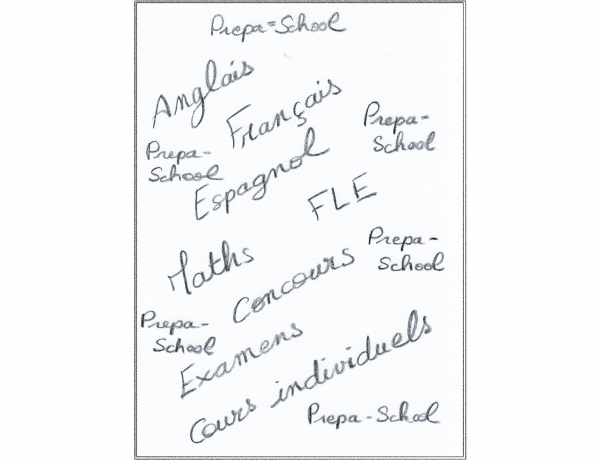 Prepa-School
Anglais
Français
Prepa-
School
Prepa-
School
Espagnol
FLE
Maths
Prepa-
School
Concours
Prepa-
School
Examens
Cours individuels
Prepa-School